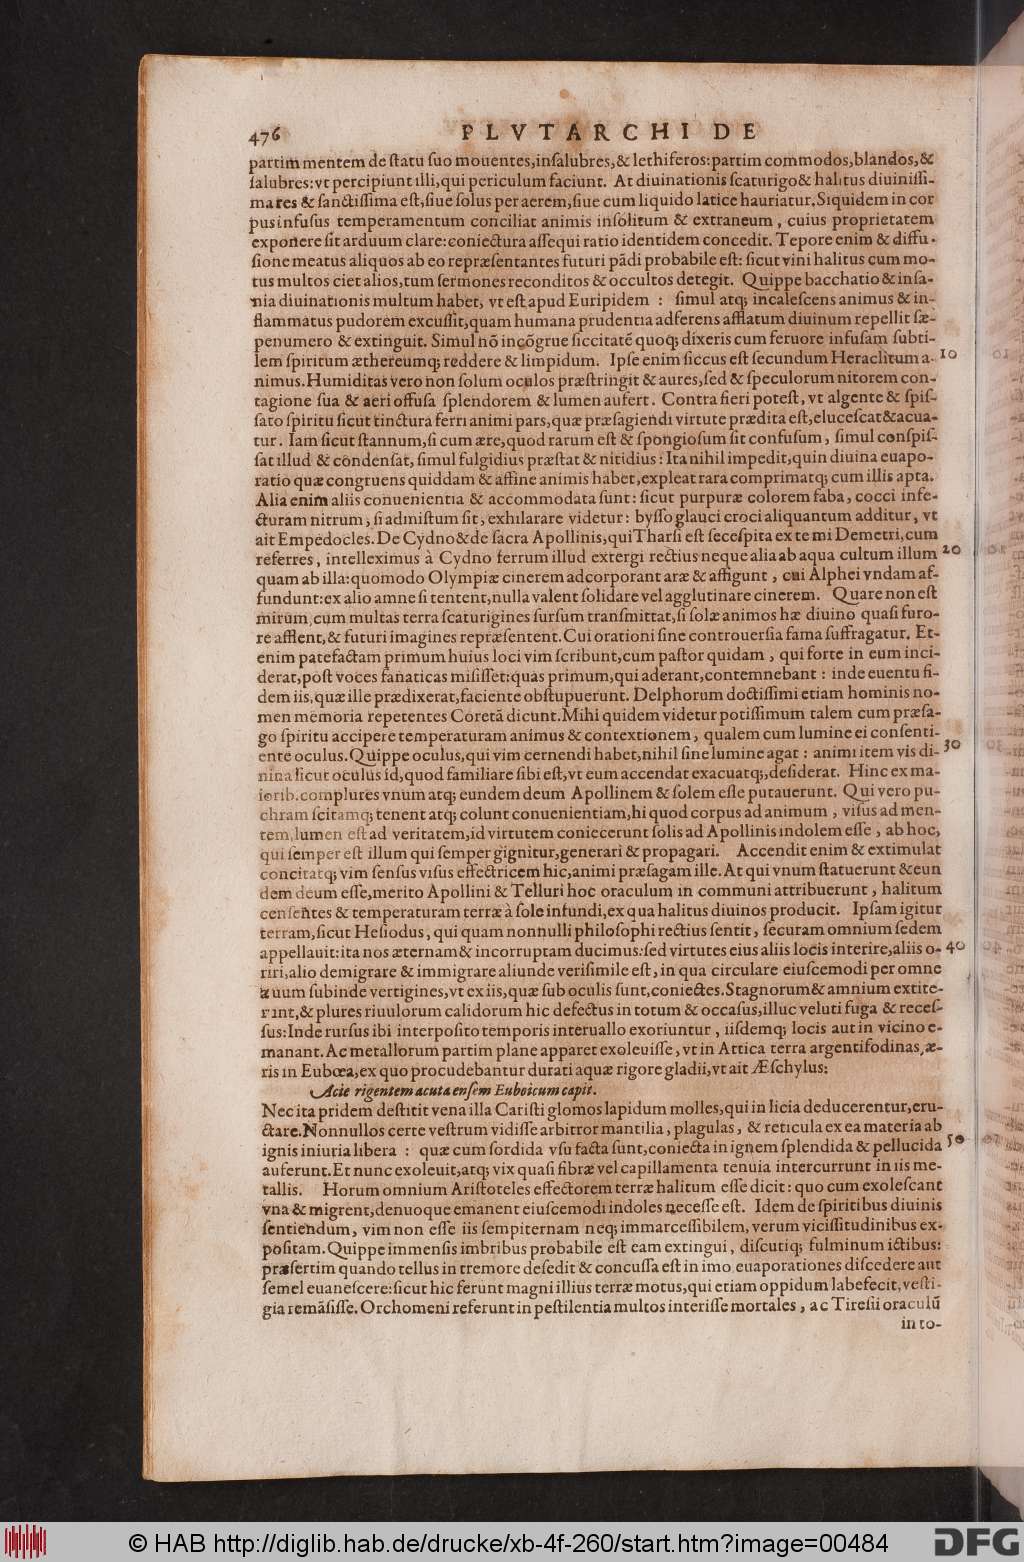 476 PLVTARCHI DE
partim mentem de ſtatu ſuo mouentes,inſalubres,& lethiferos:partim commodos,blandos,&
ſalubres:vt percipiunt illi,qui periculum faciunt. At diuinationis ſcaturigo& halitus diuiniſſi-
mares & ſanctiſſima eſt,ſiue ſolus per aerem,ſiue cum liquido latice hauriatur.Siquidem in cor
pus infuſus temperamentum conciliat animis inſolitum & extraneum , cuius proprietatem
exponere ſit arduum clare:coniectura aſſequi ratio identidem concedit. Tepore enim & diffu-
ſione meatus aliquos ab eo repræſentantes futuri pãdi probabile eſt: ſicut vini halitus cum mo-
tus multos ciet alios,tum ſermones reconditos & occultos detegit. Quippe bacchatio & inſa-
nia diuinationis multum habet, vt eſt apud Euripidem : ſimul atq; incaleſcens animus & in-
flammatus pudorem excuſſit,quam humana prudentia adferens afflatum diuinum repellit ſæ-
penumero & extinguit. Simul nõ incõgrue ſiccitatẽ quoq; dixeris cum feruore infuſam ſubti-
lem ſpiritum æthereumq; reddere & limpidum. Ipſe enim ſiccus eſt ſecundum Heraclitum a- 10
nimus.Humiditas vero non ſolum oculos præſtringit & aures,ſed & ſpeculorum nitorem con-
tagione ſua & aeri offuſa ſplendorem & lumen aufert. Contra fieri poteſt, vt algente & ſpiſ-
ſato ſpiritu ſicut tinctura ferri animi pars,quæ præſagiendi virtute prædita eſt,eluceſcat&acua-
tur. Iam ſicut ſtannum,ſi cum ære,quod rarum eſt & ſpongioſum ſit confuſum , ſimul conſpiſ-
ſat illud & condenſat, ſimul fulgidius præſtat & nitidius: Ita nihil impedit,quin diuina euapo-
ratio quæ congruens quiddam & affine animis habet,expleat rara comprimatq; cum illis apta.
Alia enim aliis conuenientia & accommodata ſunt: ſicut purpuræ colorem faba, cocci infe-
cturam nitrum, ſi admiſtum ſit, exhilarare videtur: byſſo glauci croci aliquantum additur, vt
ait Empedocles. De Cydno&de ſacra Apollinis,qui Tharſi eſt ſeceſpita ex te mi Demetri,cum
referres, intelleximus à Cydno ferrum illud extergi rectius neque alia ab aqua cultum illum 20
quam ab illa:quomodo Olympiæ cinerem adcorporant aræ & affigunt , cui Alphei vndam af-
fundunt:ex alio amne ſi tentent,nulla valent ſolidare vel agglutinare cinerem. Quare non eſt
mirum,cum multas terra ſcaturigines ſurſum tranſmittat,ſi ſolæ animos hæ diuino quaſi furo-
re afflent,& futuri imagines repræſentent.Cui orationi ſine controuerſia fama ſuffragatur. Et-
enim patefactam primum huius loci vim ſcribunt,cum paſtor quidam , qui forte in eum inci-
derat,poſt voces fanaticas miſiſſet:quas primum,qui aderant,contemnebant : inde euentu fi-
dem iis,quæ ille prædixerat,faciente obſtupuerunt. Delphorum doctiſſimi etiam hominis no-
men memoria repetentes Coretã dicunt.Mihi quidem videtur potiſſimum talem cum præſa-
go ſpiritu accipere temperaturam animus & contextionem, qualem cum lumine ei conſenti-
ente oculus.Quippe oculus,qui vim cernendi habet,nihil ſine lumine agat : animi item vis di- 30
nina ſicut oculus id,quod familiare ſibi eſt,vt eum accendat exacuatq;,deſiderat. Hinc ex ma-
iorib.complures vnum atq; eundem deum Apollinem & ſolem eſſe putauerunt. Qui vero pu-
chram ſcitamq; tenent atq; colunt conuenientiam,hi quod corpus ad animum , viſus ad men-
tem,lumen eſt ad veritatem,id virtutem coniecerunt ſolis ad Apollinis indolem eſſe , ab hoc,
qui ſemper eſt illum qui ſemper gignitur,generari & propagari. Accendit enim & extimulat
concitatq; vim ſenſus viſus effectricem hic,animi præſagam ille. At qui vnum ſtatuerunt &eun
dem deum eſſe,merito Apollini & Telluri hoc oraculum in communi attribuerunt , halitum
cenſentes & temperaturam terræ à ſole infundi,ex qua halitus diuinos producit. Ipſam igitur
terram,ſicut Heſiodus, qui quam nonnulli philoſophi rectius ſentit, ſecuram omnium ſedem
appellauit:ita nos æternam& incorruptam ducimus:ſed virtutes eius aliis locis interire,aliis o- 40
riri,alio demigrare & immigrare aliunde veriſimile eſt, in qua circulare eiuſcemodi per omne
æuum ſubinde vertigines,vt ex iis,quæ ſub oculis ſunt,coniectes. Stagnorum& amnium extite-
rint,& plures riuulorum calidorum hic defectus in totum & occaſus,illuc veluti fuga & receſ-
ſus:Inde rurſus ibi interpoſito temporis interuallo exoriuntur , iiſdemq; locis aut in vicino e-
manant. Ac metallorum partim plane apparet exoleuiſſe, vt in Attica terra argentifodinas,æ-
ris in Eubœa,ex quo procudebantur durati aquæ rigore gladii,vt ait Æſchylus:
Acie rigentem acuta enſem Euboicum capit.
Nec ita pridem deſtitit vena illa Cariſti glomos lapidum molles,qui in licia deducerentur,eru-
ctare.Nonnullos certe veſtrum vidiſſe arbitror mantilia, plagulas, & reticula ex ea materia ab
ignis iniuria libera : quæ cum ſordida vſu facta ſunt,coniecta in ignem ſplendida & pellucida 50
auferunt.Et nunc exoleuit,atq; vix quaſi fibræ vel capillamenta tenuia intercurrunt in iis me-
tallis. Horum omnium Ariſtoteles effectorem terræ halitum eſſe dicit: quo cum exoleſcant
vna & migrent,denuoque emanent eiuſcemodi indoles neceſſe eſt. Idem de ſpiritibus diuinis
ſentiendum, vim non eſſe iis ſempiternam neq; immarceſſibilem, verum viciſſitudinibus ex-
poſitam.Quippe immenſis imbribus probabile eſt eam extingui, diſcutiq; fulminum ictibus:
præſertim quando tellus in tremore deſedit & concuſſa eſt in imo euaporationes diſcedere aut
ſemel euaneſcere:ſicut hic ferunt magni illius terræ motus,qui etiam oppidum labefecit,veſti-
gia remãſiſſe. Orchomeni referunt in peſtilentia multos interiſſe mortales, ac Tireſii oraculũ
in to-
© HAB http://diglib.hab.de/drucke/xb-4f-260/start.htm?image=00484
DFG